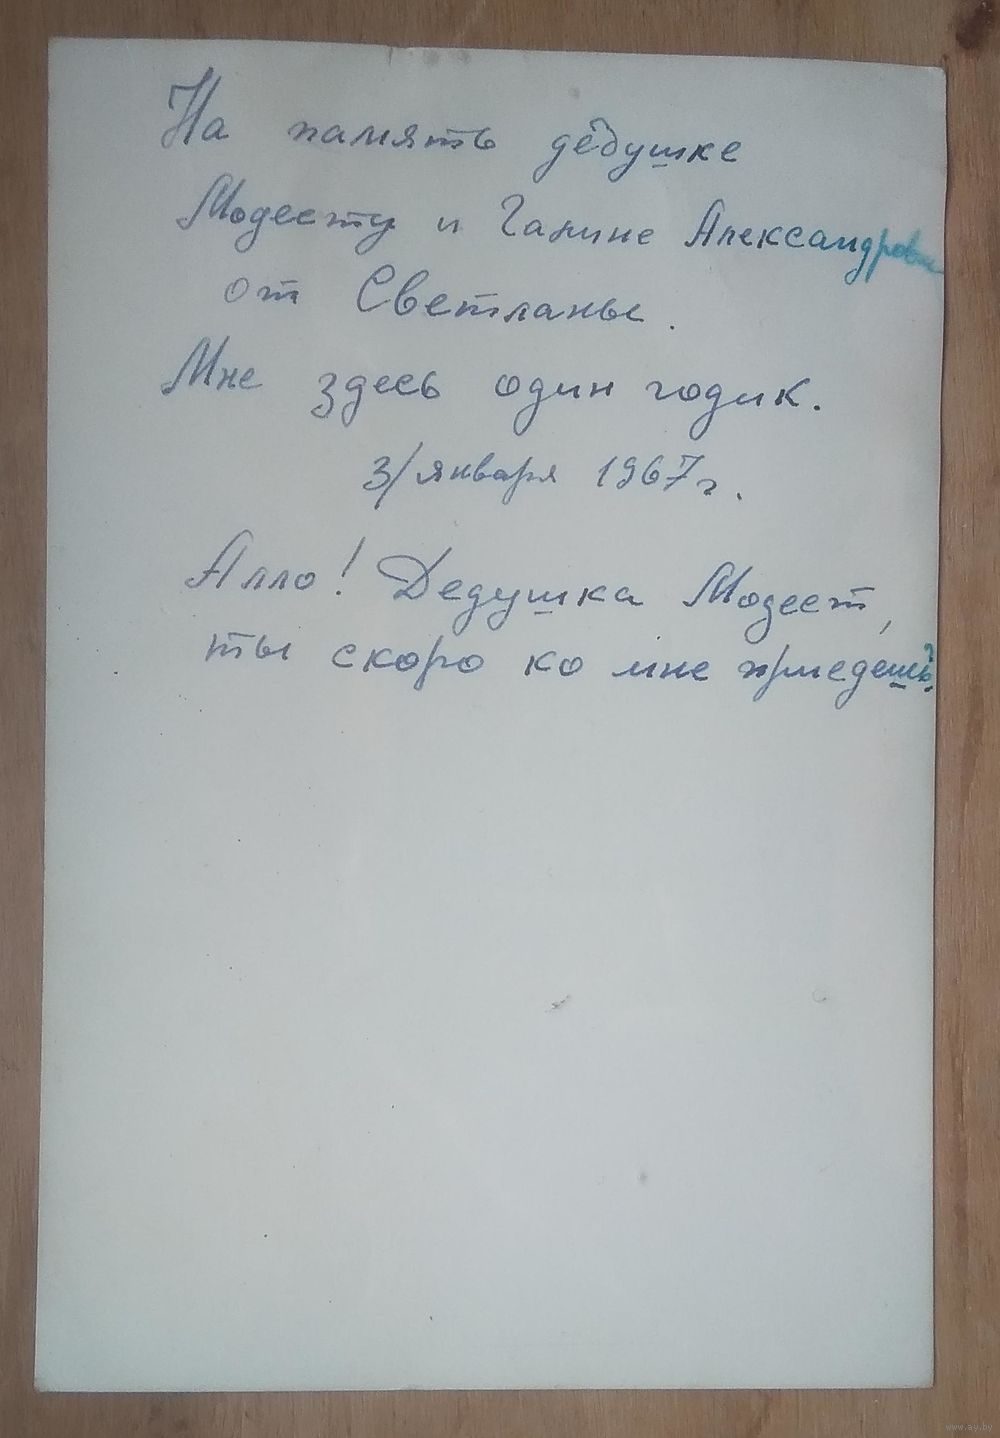 На память дедушке
Модесту и Галине Александровне
от Светланы.
Мне здесь один годик.
3/января 1967г.
Алло! Дедушка Модест,
ты скоро ко мне приедешь?
www.ay.by